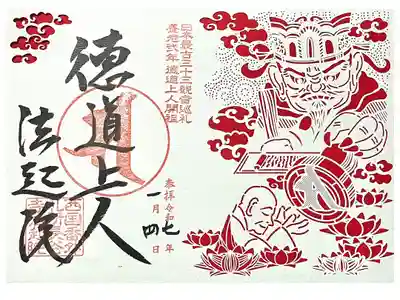 日本最古三十三観音巡礼
養老弐年徳道上人開祖
奉拝令和七年
一月四日
徳道上人
法起院